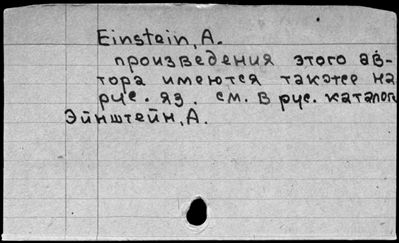 Einstein, A.
произведения этого ав-
тора имеются также на
рус. яз. см. в рус. каталоге
Эйнштейн, А.